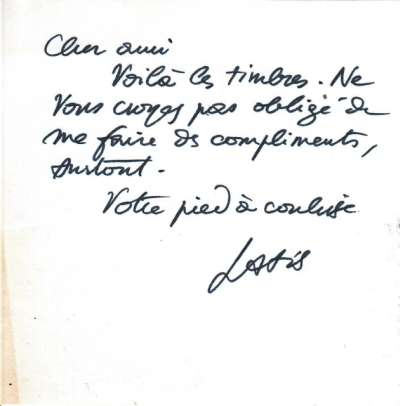 Cher ami
Voilà les timbres. Ne
vous croyez pas obligé de
me faire des compliments,
surtout.
Votre pied à coulisse
Latis